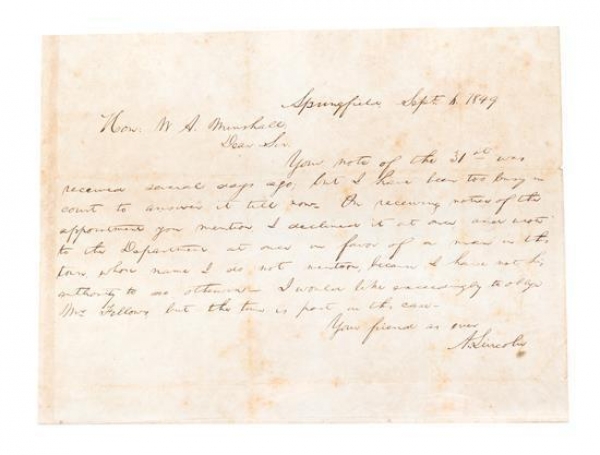 Springfield, Sept. 6. 1849
Hon. W. A. Minshall,
Dear Sir.
Your note of the 31st was
received several days ago; but I have been too busy in
court to answer it till now. On receiving notice of the
appointment you mention I declined it at once and wrote
to the Department at once in favor of a man in this
town, whose name I do not mention, because I have not his
authority to do otherwise. I would like exceedingly to oblige
Mr. Fellows but the time is past in this case.
Your friend as ever
A. Lincoln